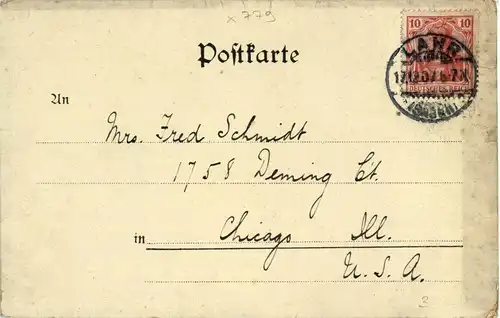 x 779
Postkarte
10 10
DEUTSCHES REICH
LAHR
(BADEN)
An
Mrs. Fred Schmidt
1758 Deming Ct.
in Chicago Ill.
U. S. A.